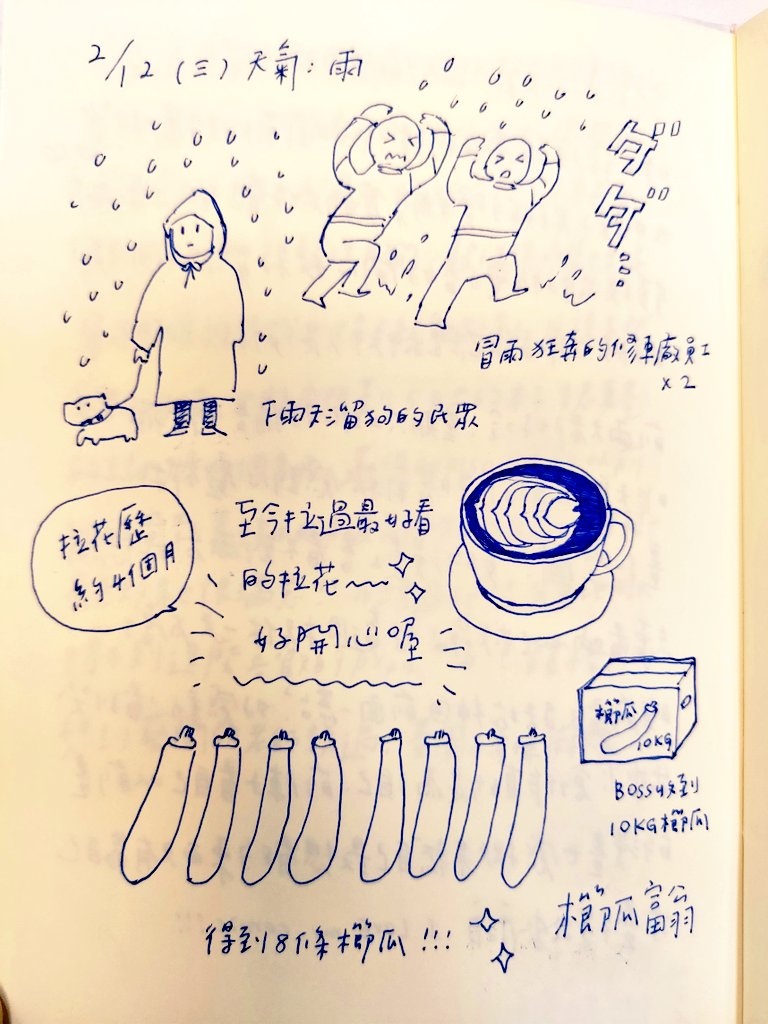 2/12 (三) 天氣：雨
ダダ…
冒雨狂奔的修車廠員工
x2
下雨天溜狗的民眾
拉花歷
約4個月
至今拉過最好看
的拉花~~
好開心喔
櫛瓜
10KG
BOSS收到
10KG櫛瓜
得到8條櫛瓜!!!
櫛瓜富翁